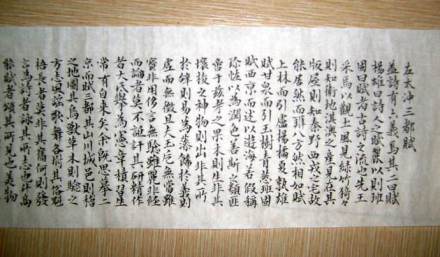 左太沖三都賦
蓋詩有六義焉其二曰賦
楊雄曰詩人之賦麗以則班
固曰賦者古詩之流也先王
采焉以觀土風見綠竹猗猗
則知衛地淇澳之產見在其
版屋則知秦野西戎之宅故
能居然而辨八方然相如賦
上林而引盧橘夏熟楊雄
賦甘泉而引玉樹青葱班固
賦西京而述以遊海若假稱
珍怪以為潤色若斯之類匪
啻于茲考之果木則生非其
壤校之神物則出非其所
於辭則易為藻飾於義則
虛而無徵且夫玉卮無當雖
寶非用侈言無驗雖麗非經
而論者莫不詆訐其研精作
者大氐舉為憲章積習生
常有自來矣余既思摹二
京而賦三都其山川城邑則稽
之地圖其鳥獸草木則驗之
方志風謠歌舞各附其俗魁
梧長者莫非其舊何則發
言為詩者詠其所志也升高
能賦者頌其所見也美物